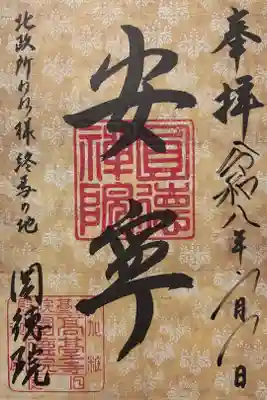 奉拝 令和八年 月 日
安寧
圓德
禪院
北政所ねね様終焉の地
圓徳院
高臺寺